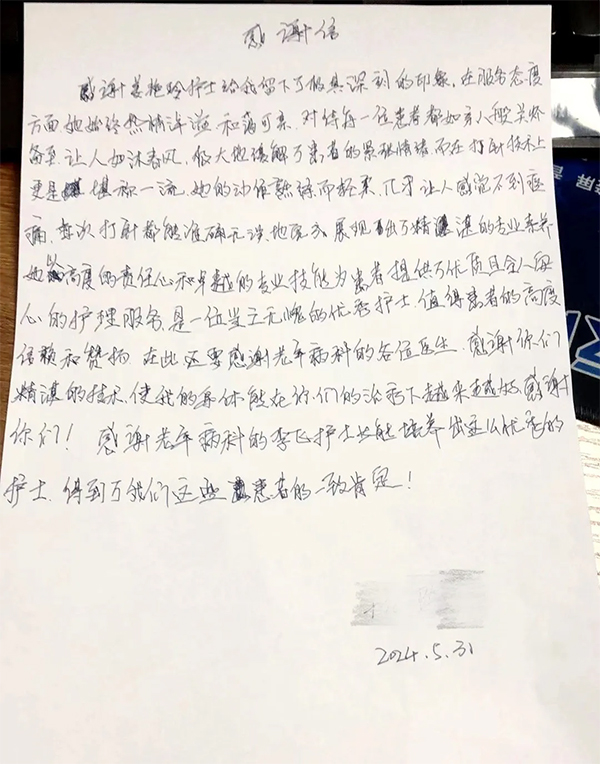 感谢信
感谢姜艳玲护士给我留下了极其深刻的印象，在服务态度
方面她始终热情洋溢和蔼可亲，对待每一位患者都如亲人般关怀
备至，让人如沐春风，极大地缓解了患者的紧张情绪而在打针技术上
更是堪称一流，她的动作熟练而轻柔，几乎让人感觉不到疼
痛，每次打针都能准确无误地完成展现出了精湛的专业素养
她以高度的责任心和卓越的专业技能为患者提供了优质且令人安
心的护理服务，是一位当之无愧的优秀护士，值得患者的高度
信赖和赞扬 在此还要感谢老年病科的各位医生，感谢你们
精湛的技术，使我的身体能在你们的治疗下越来越好，感谢
你们！ 感谢老年病科的李飞护士长能培养出这么优秀的
护士，得到了我们这些患者的一致肯定！
2024.5.31